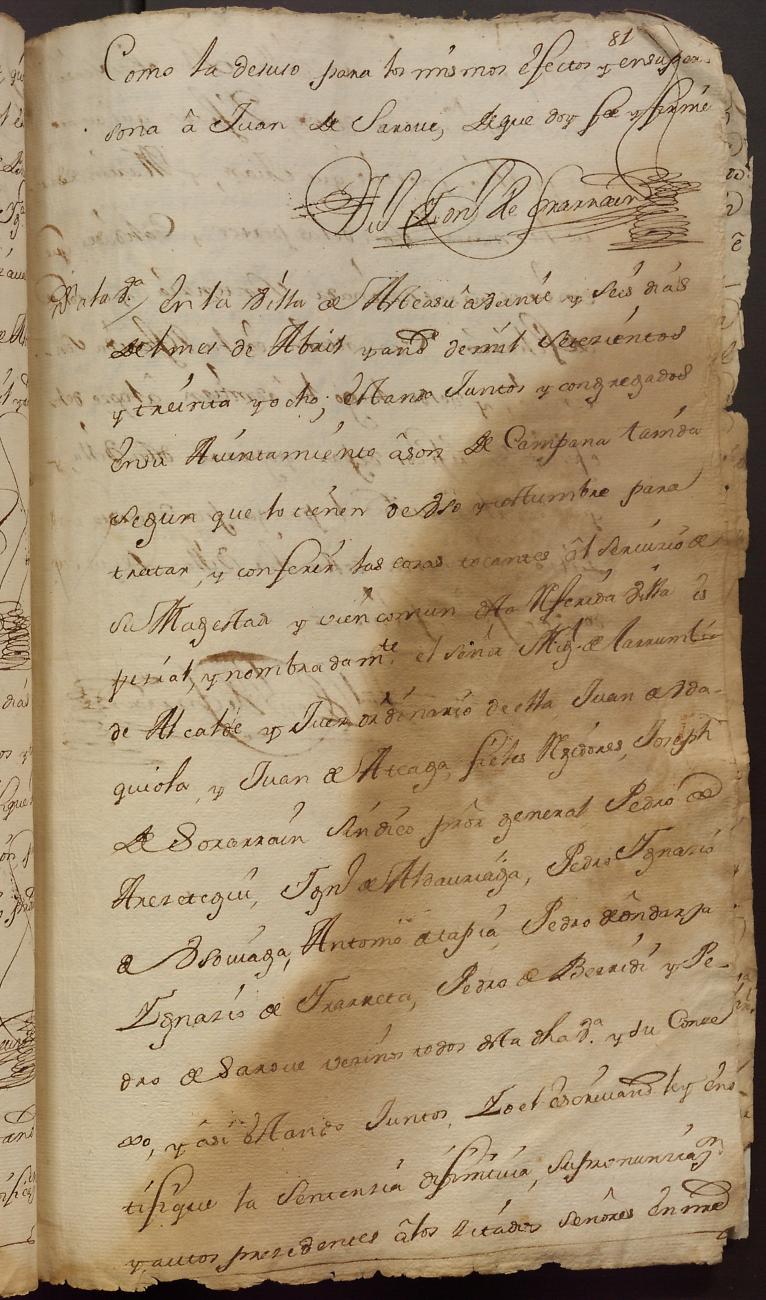 81
Como la desuso para los mismos efectos y en su per-
sona â Juan de Sarove, de que doy fee y firmé
En la Villa de Ateasu â veinte y seis dias
del mes de Abril y año de mil setezientos
y treinta y ocho; estando Juntos y congregados
en su Aiuntamiento âson de Campana tañida
segun que lo tienen de Vso y costumbre para
tratar, y conferir las cosas tocantes âl servizio de
su Magestad y vien comun desta Referida Villa es
pezial, y nombradamte. el señor Migl. de Larrum
de Alcalde y Juez ordinario de ella, Juan de
quiola, y Juan de Ateaga fieles Regidores, Joseph
de Sorarrain sindico pror general Pedro de
Arezetegui, Ignº de Aldauriaga, Pedro Ignazio
de Vsoviaga, Antonio de tapia, Pedro de ôndarza
Ignazio de Irarreta, Pedro de Berridi y Pe-
dro de Sarove vezinos todos desta dha Va. y su Conce
xo, y âsi estando Juntos, Yo el escrivano ley y no
tifique la Sentenzia difinitiva, su pronunziazn.
y autos prezedentes âlos zitados señores en